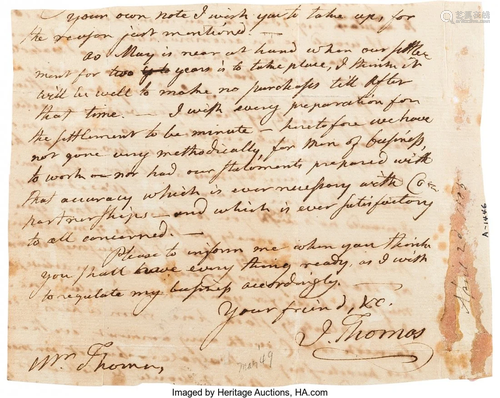 your own note I wish you to take up, for
the reason just mentioned —
as May is near at hand when our settle
ment for two years is to take place, I think it
will be well to make no purchases till after
that time. — I wish every preparation for
the settlement to be minute — heretofore we have
not gone very methodically, for men of business,
to work — nor had our statements prepared with
that accuracy which is ever necessary with Co
partnerships — and which is ever satisfactory
to all concerned —
Please to inform me when you think
you shall have every thing ready, as I wish
to regulate my business accordingly.
Your friend, &c.
I. Thomas
Wm Thomas,
A-1446
Imaged by Heritage Auctions, HA.com